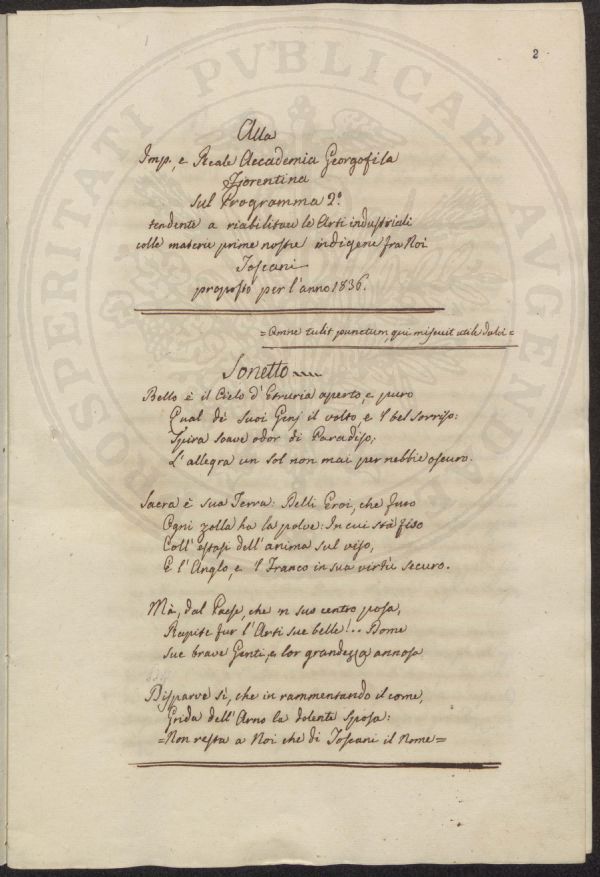 2
Alla
Imp, e Reale Accademia Georgofila
Fiorentina
sul Programma 2.º
tendente a riabilitare le Arti industriali
colle materie prime nostre indigene fra Noi
Toscani
proposto per l'anno 1836.
=Omne tulit punctum, qui miscuit utile dulci=
Sonetto
Bello è il Cielo d'Etruria aperto, e puro
Qual dè suoi Genj il volto, e 'l bel sorriso:
Spira soave odor di Paradiso;
L'allegra un sol non mai per nebbie oscuro.
Sacra è sua Terra: Delli Eroi, che furo
Ogni zolla ha la polve: In cui stà fiso
Coll'estasi dell'anima sul viso,
E l'Anglo, e 'l Franco in sua virtù securo.
Mà, dal Paese, che in suo centro posa,
Rapite fur l'Arti sue belle!.. Dome
sue brave Genti, e lor grandezza annosa
Disparve sì, che in rammentando il come,
Grida dell'Arno la dolente Sposa:
=Non resta a Noi che di Toscani il Nome=
PROSPERITATI PVBLICAE AVGENDAE